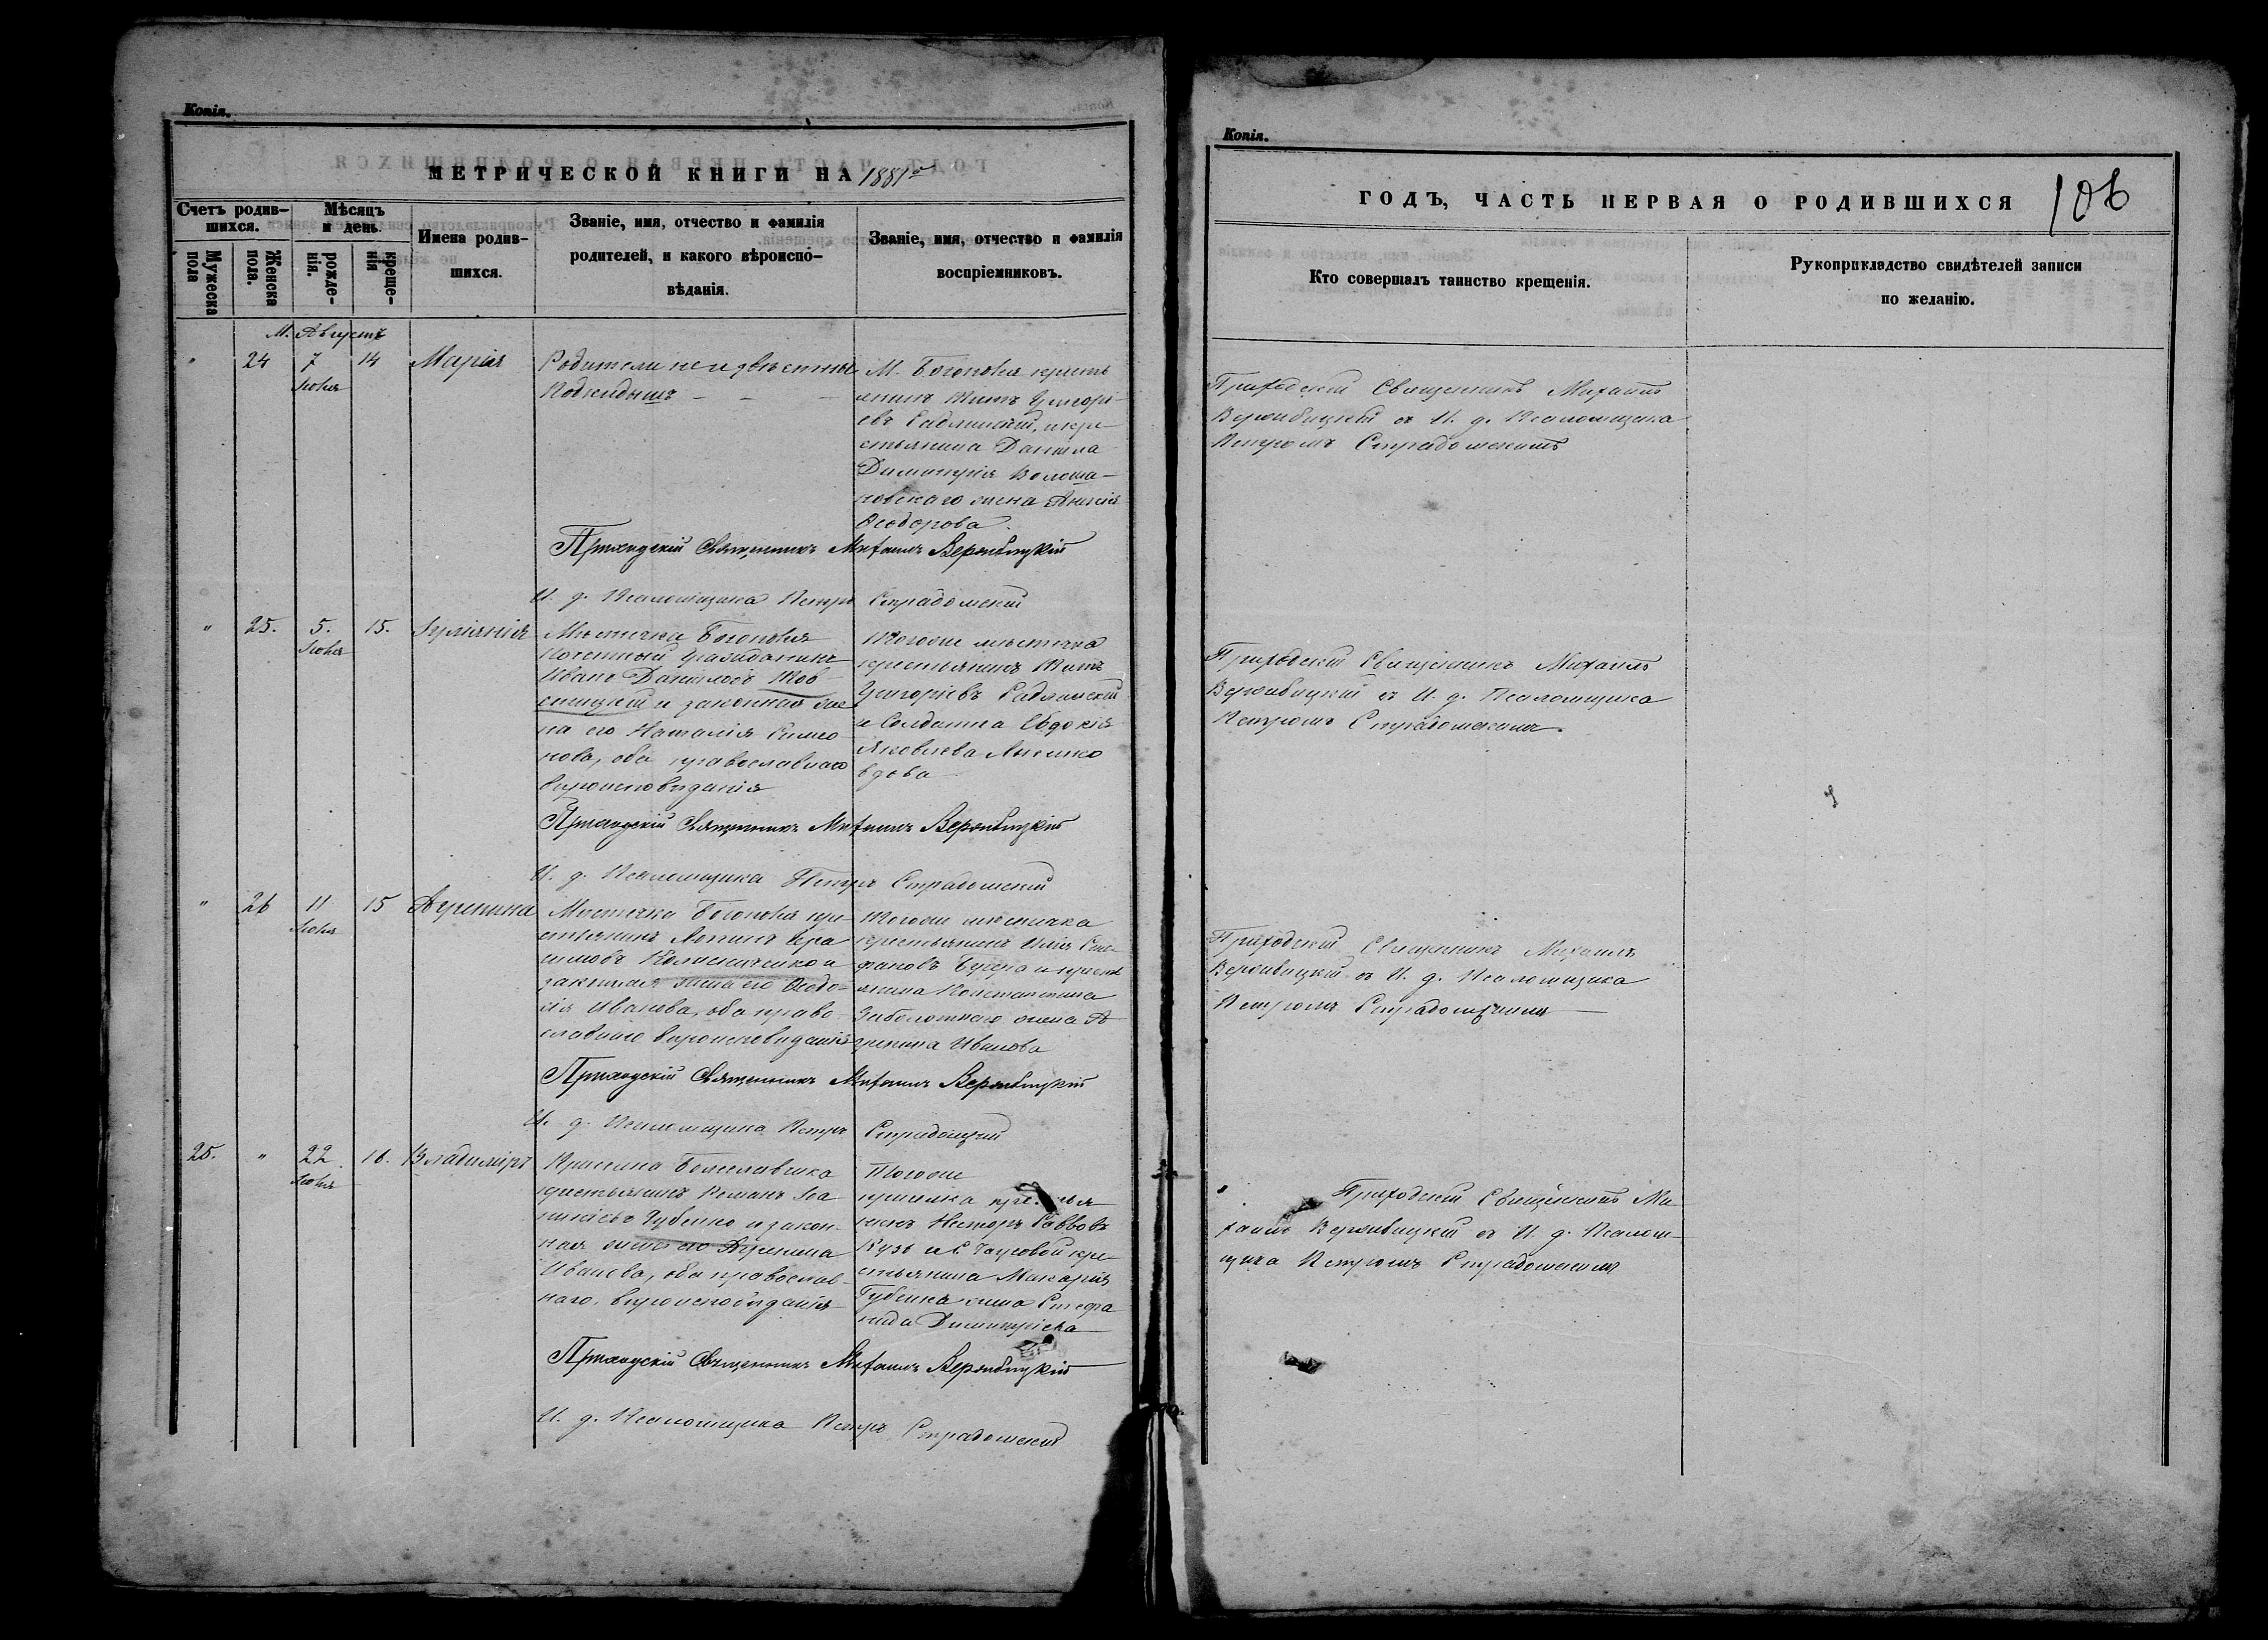 Копія.
МЕТРИЧЕСКОЙ КНИГИ НА 1881й
Счетъ родив-
шихся.
Мужеска
пола
Женска
пола.
Мѣсяцъ
и день.
рожде-
нія.
креще-
нія
Имена родив-
шихся.
Званіе, имя, отчество и фамилія
родителей, и какого вѣроиспо-
вѣданія.
Званіе, имя, отчество и фамилія
воспріемниковъ.
М. Августъ
" 24 7 14 Марія
Родители неизвѣстны
Подкидышъ - - -
М. Богополя кресть
янинъ Титъ Григорі-
евъ и кре-
стьянина Даніила
Димитрія Волоша-
новскаго жена
Ѳеодорова.
Приходскій Священникъ Михаилъ Вержбицкій
И. д. Псаломщика Петръ Страдомскій
" 25. 5. 15. Іуліанія
Мѣстечка Богополя
Почетный гражданинъ
Иванъ Даніиловъ
и законная же
на его Наталія Симео
нова, оба православнаго
вѣроисповѣданія
Тогоже мѣстечка
крестьянинъ Титъ
Григоріевъ
и Солдатка Евдокія
Яковлева
вдова
Приходскій Священникъ Михаилъ Вержбицкій
И. д. Псаломщика Петръ Страдомскій
" 26 11 15 Агрипина
Мѣстечка Богополя кре-
стьянинъ Гера
симовъ и
законная жена его Ѳеодо-
сія Иванова, оба право
славнаго вѣроисповѣданія
Тогоже мѣстечка
крестьянинъ Илія Сте-
фановъ и кресть
янина Константина
Заболотнаго жена А
грипина Иванова
Приходскій Священникъ Михаилъ Вержбицкій
И. д. Псаломщика Петръ Страдомскій
25. " 22 16. Владиміръ
крестьянинъ Романъ
Губенко и закон-
ная жена его Агрипина
Иванова, оба православ-
наго, вѣроисповѣданія
Тогоже
Кузь и кре-
стьянина Макарія
Губенка жена Стефа
нида Димитріева
Приходскій Священникъ Михаилъ Вержбицкій
И. д. Псаломщика Петръ Страдомскій
Копія.
ГОДЪ, ЧАСТЬ ПЕРВАЯ О РОДИВШИХСЯ
106
Кто совершалъ таинство крещенія.
Рукоприкладство свидѣтелей записи
по желанію.
Приходскій Священникъ Михаилъ
Вержбицкій съ И. д. Псаломщика
Петромъ Страдомскимъ
Приходскій Священникъ Михаилъ
Вержбицкій съ И. д. Псаломщика
Петромъ Страдомскимъ
Приходскій Священникъ Михаилъ
Вержбицкій съ И. д. Псаломщика
Петромъ Страдомскимъ
Приходскій Священникъ Ми-
хаилъ Вержбицкій съ И. д. Псалом-
щика Петромъ Страдомскимъ